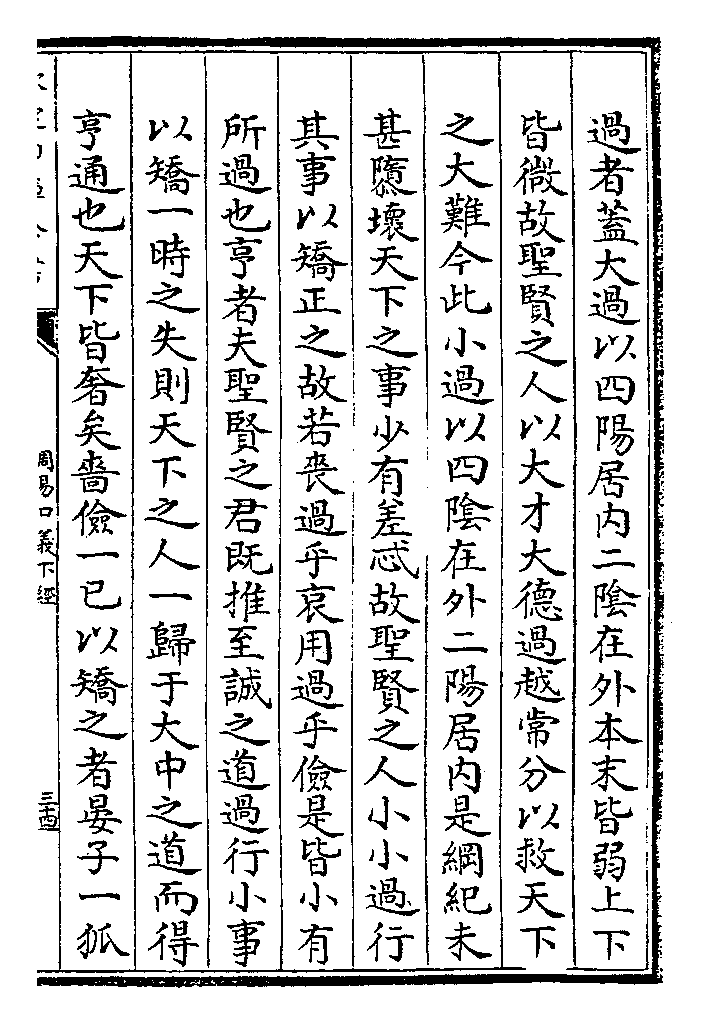 過者蓋大過以四陽居内二陰在外本末皆弱上下
皆微故聖賢之人以大才大德過越常分以救天下
之大難今此小過以四陰在外二陽居内是綱紀未
甚隳壞天下之事少有差忒故聖賢之人小小過行
其事以矯正之故若喪過乎哀用過乎儉是皆小有
所過也亨者夫聖賢之君既推至誠之道過行小事
以矯一時之失則天下之人一歸于大中之道而得
亨通也天下皆奢矣嗇儉一已以矯之者晏子一狐
周易口義下經
三十四